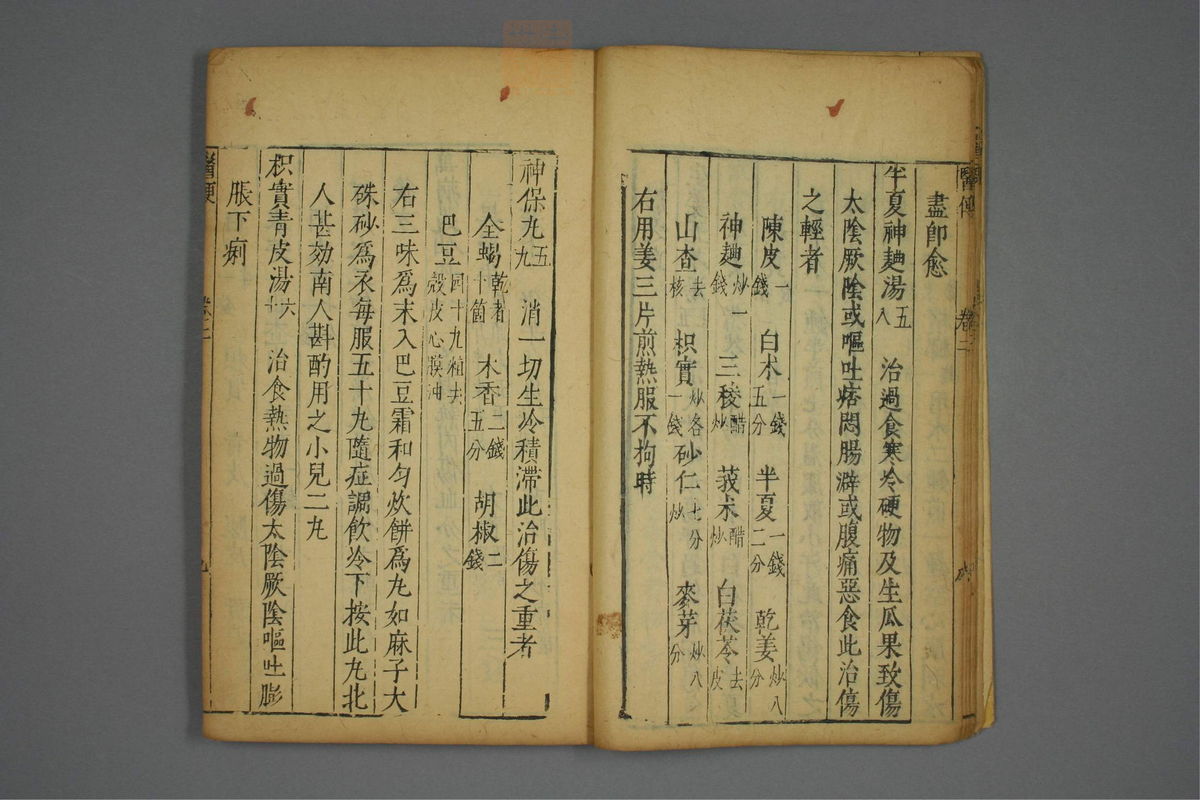 醫便 卷二
盡即愈
半夏神麯湯五八 治過食寒冷硬物及生瓜果致傷
太陰厥陰或嘔吐痞悶腸澼或腹痛惡食此治傷
之輕者
陳皮一錢 白朮一錢五分 半夏一錢二分 乾姜炒八分
神麯炒一錢 三稜醋炒 莪朮醋炒 白茯苓去皮
山查去核 枳實炒各一錢 砂仁七分炒 麥芽炒八分
右用姜三片煎熱服不拘時
神保丸五九 消一切生冷積滯此治傷之重者
全蝎乾者十箇 木香二錢五分 胡椒二錢
巴豆同十九粒去殼皮心膜油
右三味爲末入巴豆霜和勻炊餅爲丸如麻子大
硃砂爲衣每服五十丸隨症調飲冷下按此丸北
人甚効南人斟酌用之小兒二丸
枳實青皮湯六十 治食熱物過傷太陰厥陰嘔吐膨
脹下痢
醫便 卷二